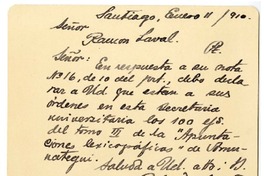 Santiago, Enero 11/910.
Señor
Ramon Laval.
Pte.
Señor: En respuesta a su nota
No 16, de 10 del pte., debo decla
rar a Ud. que estan a sus
órdenes en esta secretaría
universitaria los 100 ejs.
del tomo III de las "Apunta
ciones lexicográficas" de Amu
nategui.
Saluda a Ud. a